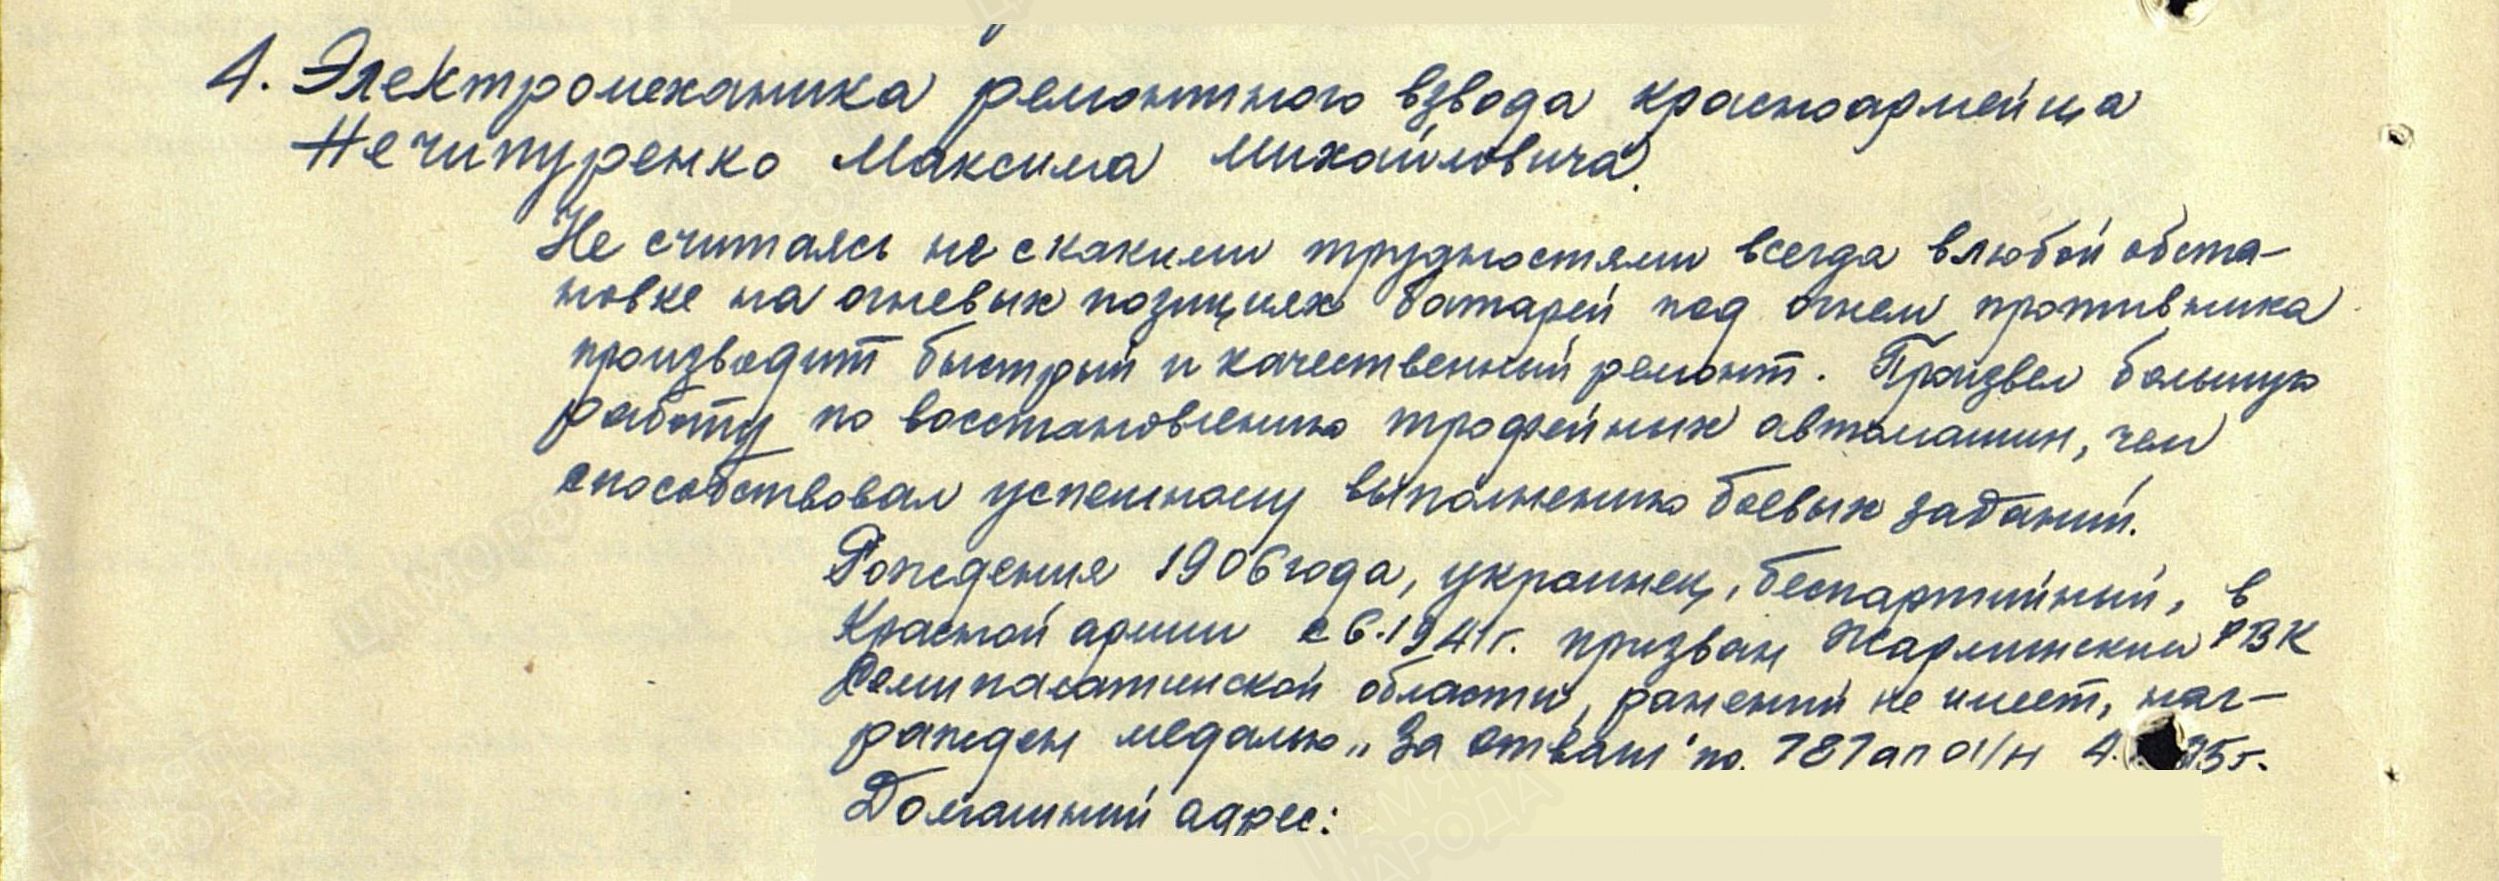 4. Электромеханика ремонтного взвода красноармейца
Нечипуренко Максима Михайловича.
Не считаясь не с какими трудностями всегда в любой обста-
новке на огневых позициях батарей под огнем противника
производит быстрый и качественный ремонт. Произвел большую
работу по восстановлению трофейных автомашин, чем
способствовал успешному выполнению боевых заданий.
Рождения 1906 года, украинец, беспартийный, в
Красной армии с 6.1941 г. призван Жарминским РВК
Семипалатинской области, ранений не имеет, наг-
ражден медалью „За отвагу" пр. 787 ап 01/н 4. 45 г.
Домашний адрес: